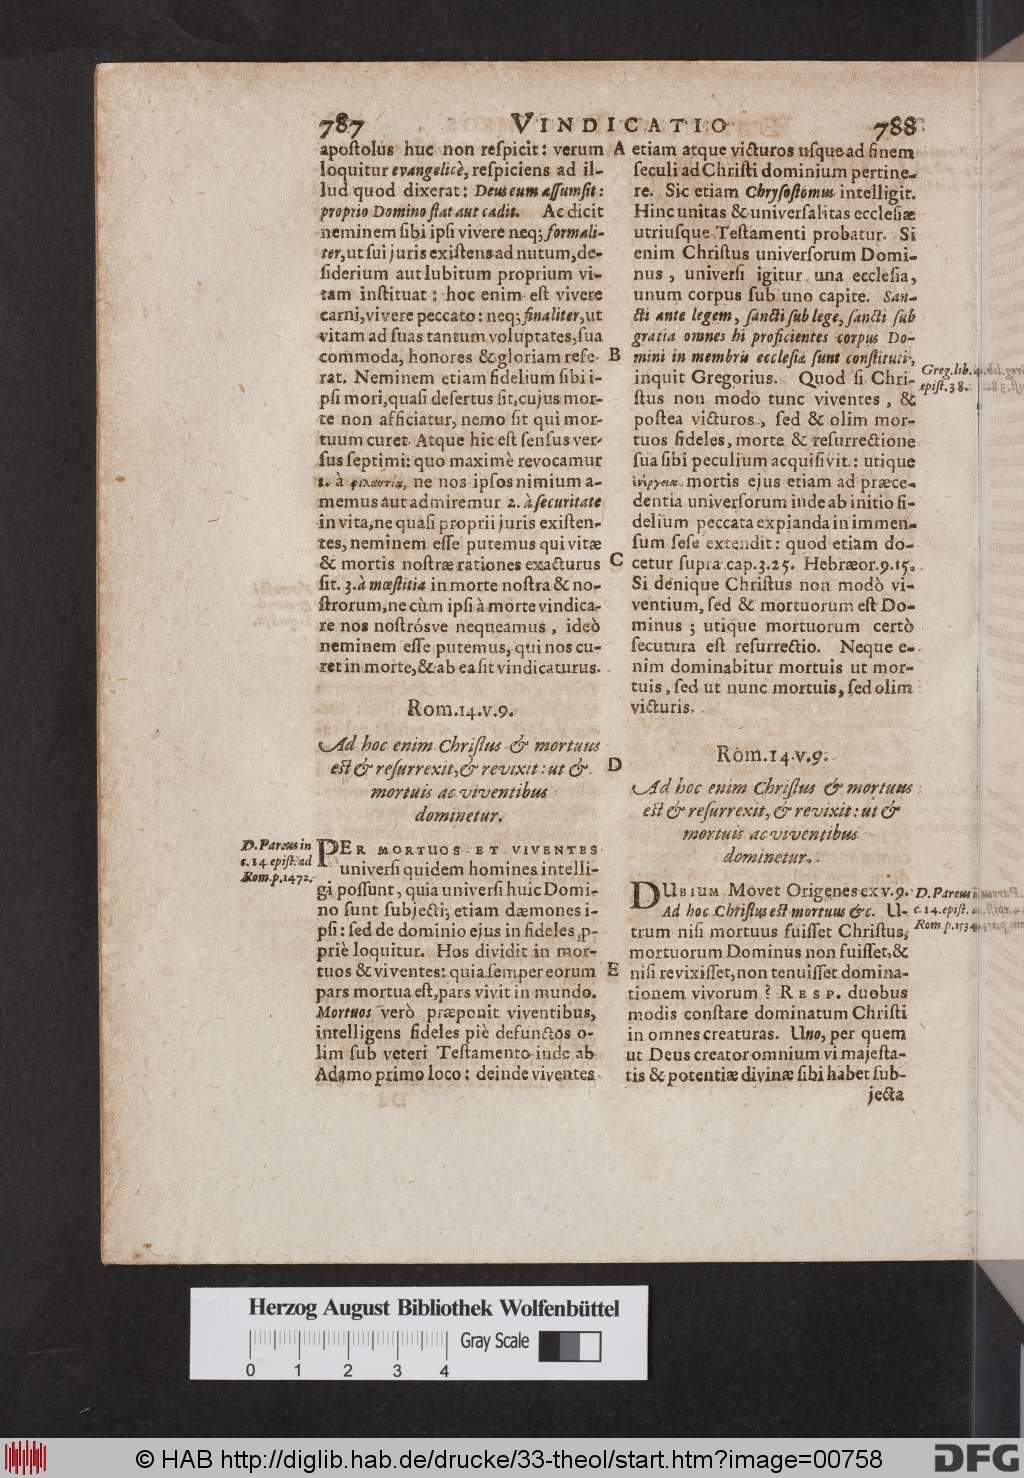 787 VINDICATIO 788
apoſtolus huc non reſpicit: verum
loquitur evangelicè, reſpiciens ad il-
lud quod dixerat: Deus eum aſſumſit:
proprio Domino ſtat aut cadit. Ac dicit
neminem ſibi ipſi vivere neq; formali-
ter, ut ſui juris exiſtens ad nutum, de-
ſiderium aut lubitum proprium vi-
tam inſtituat: hoc enim eſt vivere
carni, vivere peccato: neq; finaliter, ut
vitam ad ſuas tantum voluptates, ſua
commoda, honores & gloriam refe-
rat. Neminem etiam fidelium ſibi i-
pſi mori, quaſi deſertus ſit, cujus mor-
te non afficiatur, nemo ſit qui mor-
tuum curet. Atque hic eſt ſenſus ver-
ſus ſeptimi: quo maximè revocamur
1. à φιλαυτία, ne nos ipſos nimium a-
memus aut admiremur 2. à ſecuritate
in vita, ne quaſi proprii juris exiſten-
tes, neminem eſſe putemus qui vitæ
& mortis noſtræ rationes exacturus
ſit. 3. à mœſtitia in morte noſtra & no-
ſtrorum, ne cùm ipſi à morte vindica-
re nos noſtrósve nequeamus, ideò
neminem eſſe putemus, qui nos cu-
ret in morte, & ab ea ſit vindicaturus.
Rom.14.v.9.
Ad hoc enim Chriſtus & mortuus
eſt & reſurrexit, & revixit: ut &
mortuis ac viventibus
dominetur.
D. Pareus in
c.14. epiſt. ad
Rom.p.1472.
PER MORTUOS ET VIVENTES
univerſi quidem homines intelli-
gi poſſunt, quia univerſi huic Domi-
no ſunt ſubjecti; etiam dæmones i-
pſi: ſed de dominio ejus in fideles ,p-
priè loquitur. Hos dividit in mor-
tuos & viventes: quia ſemper eorum
pars mortua eſt, pars vivit in mundo.
Mortuos verò præponit viventibus,
intelligens fideles piè defunctos o-
lim ſub veteri Teſtamento inde ab
Adamo primo loco: deinde viventes
A
B
C
D
E
etiam atque victuros uſque ad finem
ſeculi ad Chriſti dominium pertine-
re. Sic etiam Chryſoſtomus intelligit.
Hinc unitas & univerſalitas eccleſiæ
utriuſque Teſtamenti probatur. Si
enim Chriſtus univerſorum Domi-
nus, univerſi igitur una eccleſia,
unum corpus ſub uno capite. San-
cti ante legem, ſancti ſub lege, ſancti ſub
gratia omnes hi proficientes corpus Do-
mini in membris eccleſiæ ſunt conſtituti,
inquit Gregorius. Quod ſi Chri-
ſtus non modò tunc viventes, &
poſtea victuros, ſed & olim mor-
tuos fideles, morte & reſurrectione
ſua ſibi peculium acquiſivit: utique
ἐνέργεια mortis ejus etiam ad præce-
dentia univerſorum inde ab initio fi-
delium peccata expianda in immen-
ſum ſeſe extendit: quod etiam do-
cetur ſupra cap.3.25. Hebræor.9.15.
Si denique Chriſtus non modò vi-
ventium, ſed & mortuorum eſt Do-
minus; utique mortuorum certò
ſecutura eſt reſurrectio. Neque e-
nim dominabitur mortuis ut mor-
tuis, ſed ut nunc mortuis, ſed olim
victuris.
Greg.lib.4.
epiſt.38.
Rom.14.v.9.
Ad hoc enim Chriſtus & mortuus
eſt & reſurrexit, & revixit: ut &
mortuis ac viventibus
dominetur.
DUBIUM Movet Origenes ex v.9.
Ad hoc Chriſtus eſt mortuus &c. U-
trum niſi mortuus fuiſſet Chriſtus,
mortuorum Dominus non fuiſſet, &
niſi revixiſſet, non tenuiſſet domina-
tionem vivorum? RESP. duobus
modis conſtare dominatum Chriſti
in omnes creaturas. Uno, per quem
ut Deus creator omnium vi majeſta-
tis & potentiæ divinæ ſibi habet ſub-
jecta
D. Pareus
c.14. epiſt.
Rom.p.1534
Herzog August Bibliothek Wolfenbüttel
0 1 2 3 4 Gray Scale
© HAB http://diglib.hab.de/drucke/33-theol/start.htm?image=00758
DFG